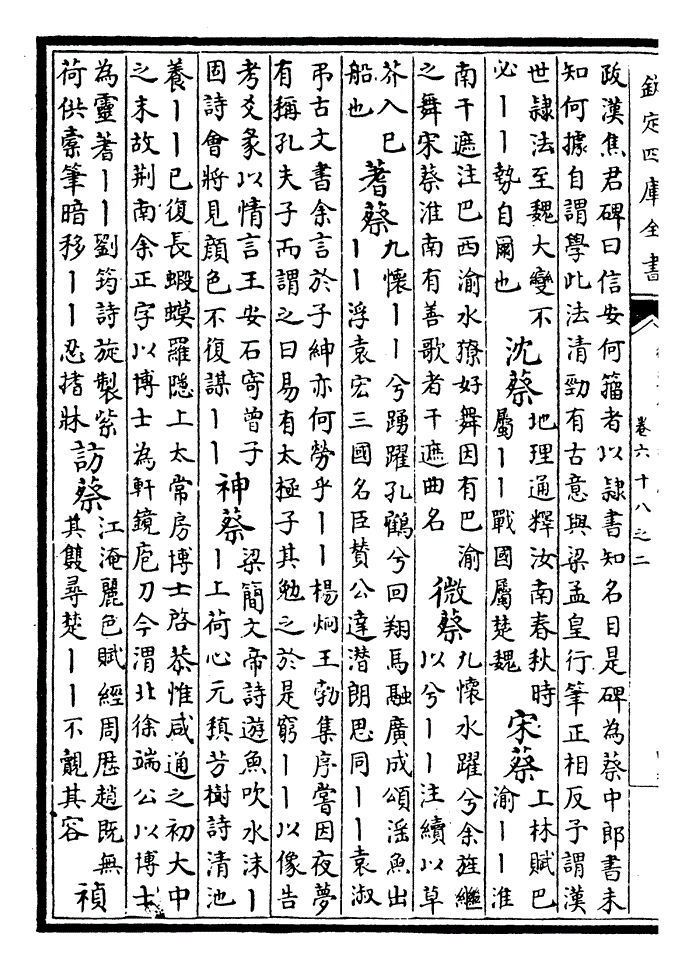 欽定四庫全書
卷六十八之二
政漢焦君碑曰信安何籀者以隸書知名目是碑為蔡中郎書未
知何據自謂學此法清勁有古意與梁孟皇行筆正相反予謂漢
世隸法至魏大變不
必丨丨勢自爾也
沈蔡
地理通釋汝南春秋時
屬丨丨戰國屬楚魏
宋蔡
上林賦巴
渝丨丨淮
南干遮注巴西渝水獠好舞因有巴渝
之舞宋蔡淮南有善歌者干遮曲名
微蔡
九懷水躍兮余旌繼
以兮丨丨注續以草
芥入巳
船也
蓍蔡
九懷丨丨兮踴躍孔鶴兮回翔馬融廣成頌滛魚出
丨丨浮袁宏三國名臣贊公達潛朗思同丨丨袁淑
弔古文書余言於子紳亦何勞乎丨丨楊炯王勃集序嘗因夜夢
有稱孔夫子而謂之曰易有太極子其勉之於是窮丨丨以像告
考爻彖以情言王安石寄曾子
固詩會將見顏色不復謀丨丨
神蔡
梁簡文帝詩遊魚吹水沫丨
丨上荷心元稹芳樹詩清池
養丨丨已復長蝦蟆羅隱上太常房博士啓恭惟咸通之初大中
之末故荊南余正字以博士為軒鏡庖刀今渭北徐端公以博士
為靈蓍丨丨劉筠詩旋製紫
荷供槖筆暗移丨丨忍搘牀
訪蔡
江淹麗色賦經周歷趙既無
其雙尋楚丨丨不覿其容
禎